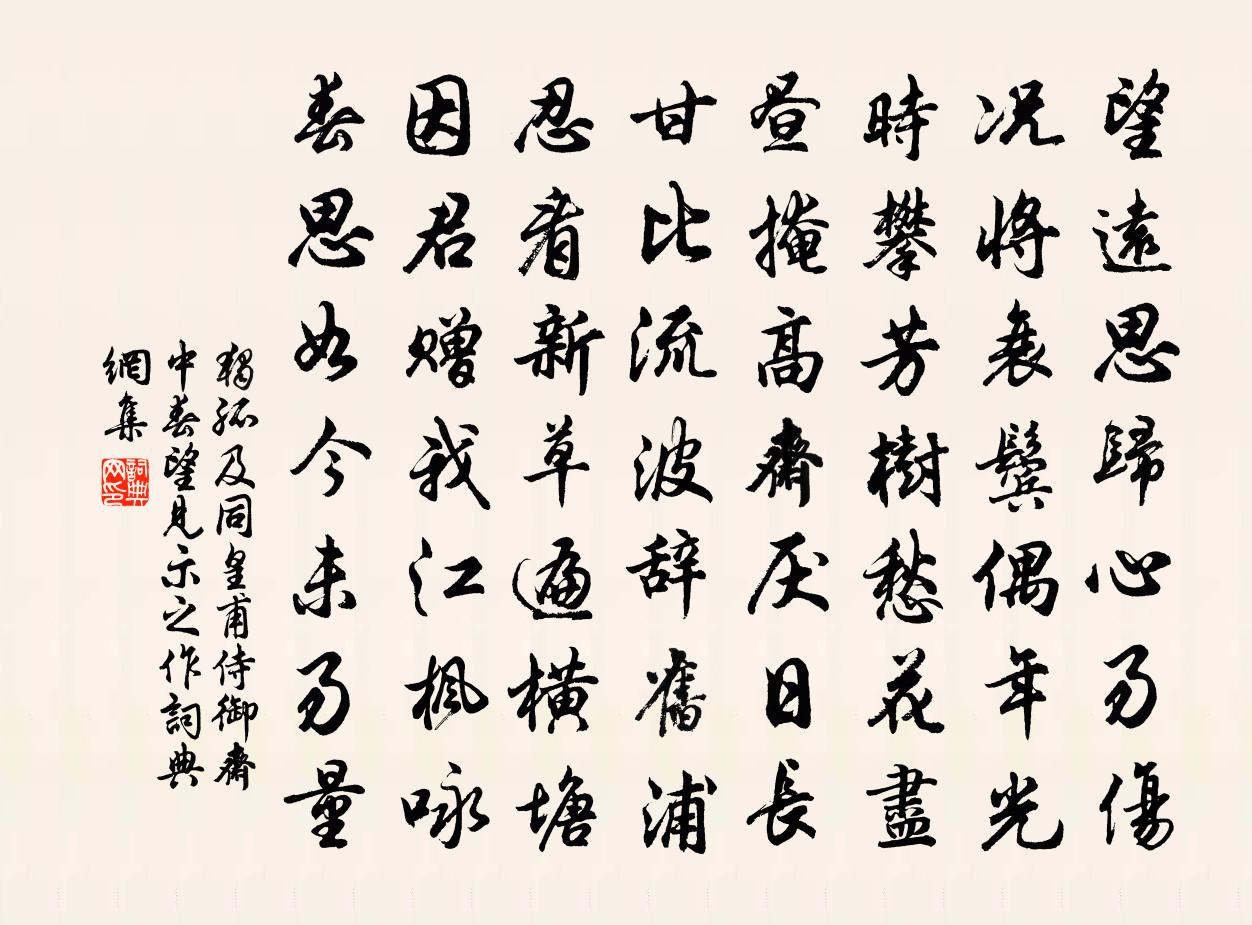 望遠思歸心易傷
况將衰鬢偶年光
時攀芳樹愁花盡
昼掩高齋厌日長
甘比流波辞舊浦
忍看新草遍橫塘
因君赠我江楓咏
春思如今未易量
獨孤及同皇甫侍御齋
中春望見示之作詞典
網集
詞典网印